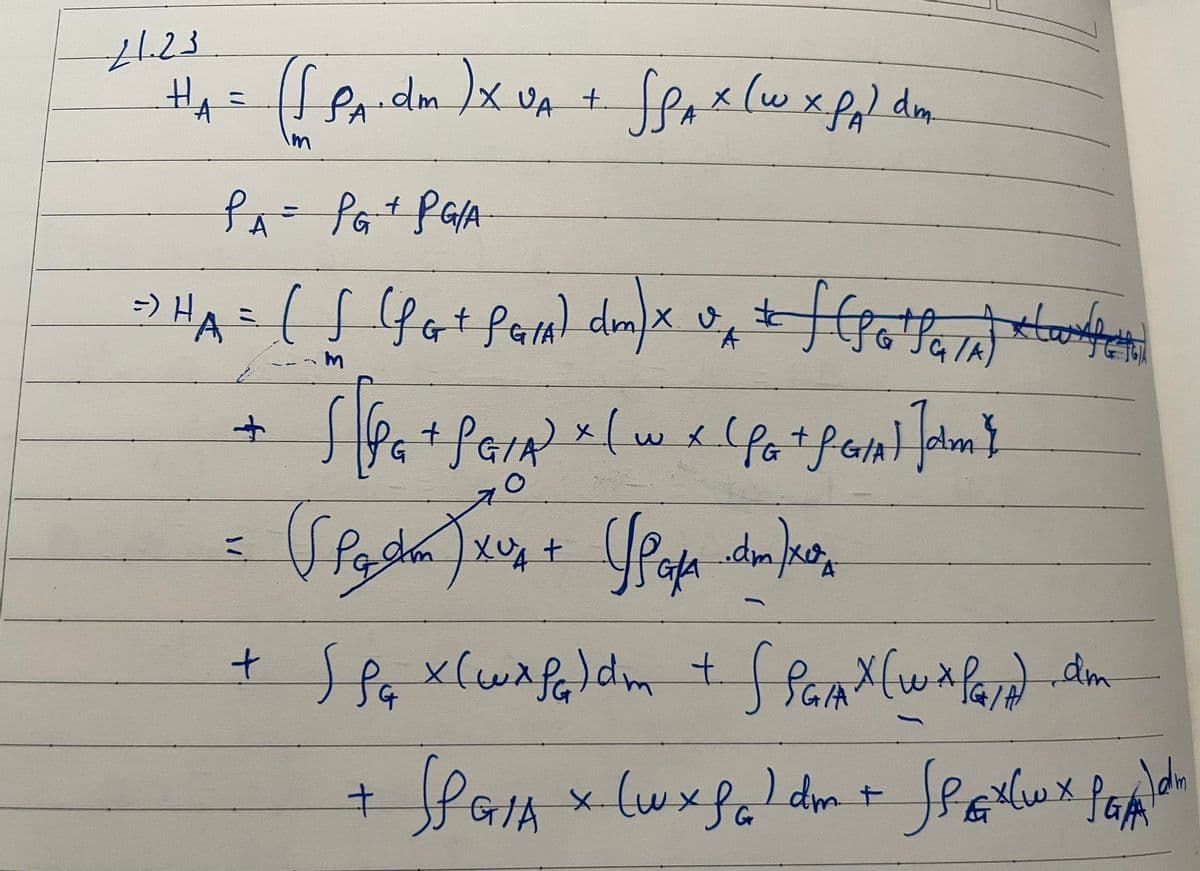 21.23
H_A = (∫_m ρ_A . dm) × υ_A + ∫ρ_A × (ω × ρ_A) dm
ρ_A = ρ_G + ρ_G/A
=> H_A = ( ∫_m (ρ_G + ρ_G/A) dm) × υ_A + ∫(ρ_G + ρ_G/A) × (ω × (ρ_G + ρ_G/A)
+ ∫[(ρ_G + ρ_G/A) × (ω × (ρ_G + ρ_G/A)] dm }
= (∫ρ_G dm) × υ_A + (∫ρ_G/A . dm) × υ_A
0
+ ∫ρ_G × (ω × ρ_G) dm + ∫ρ_G/A × (ω × ρ_G/A) . dm
+ ∫ρ_G/A × (ω × ρ_G) dm + ∫ρ_G × (ω × ρ_G/A) dm